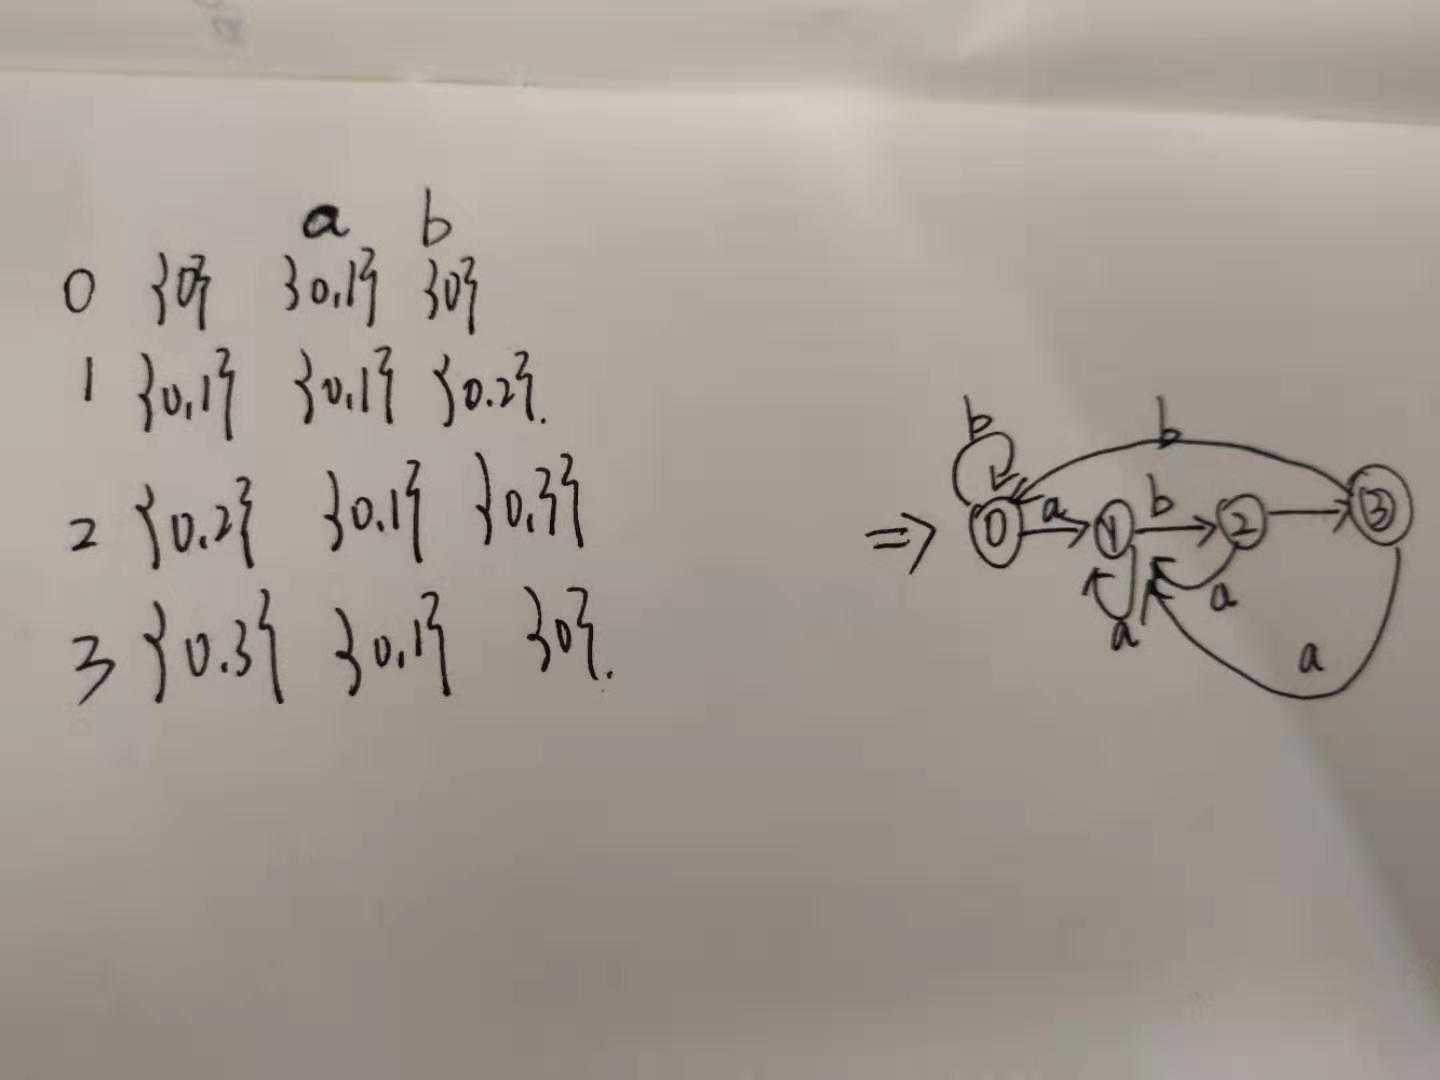 a b
0 {0} {0,1} {0}
1 {0,1} {0,1} {0.2}.
2 {0.2} {0.1} {0.3}
3 {0.3} {0,1} {0}.
b b
⇒ 0 a 1 b 2 3
a a a